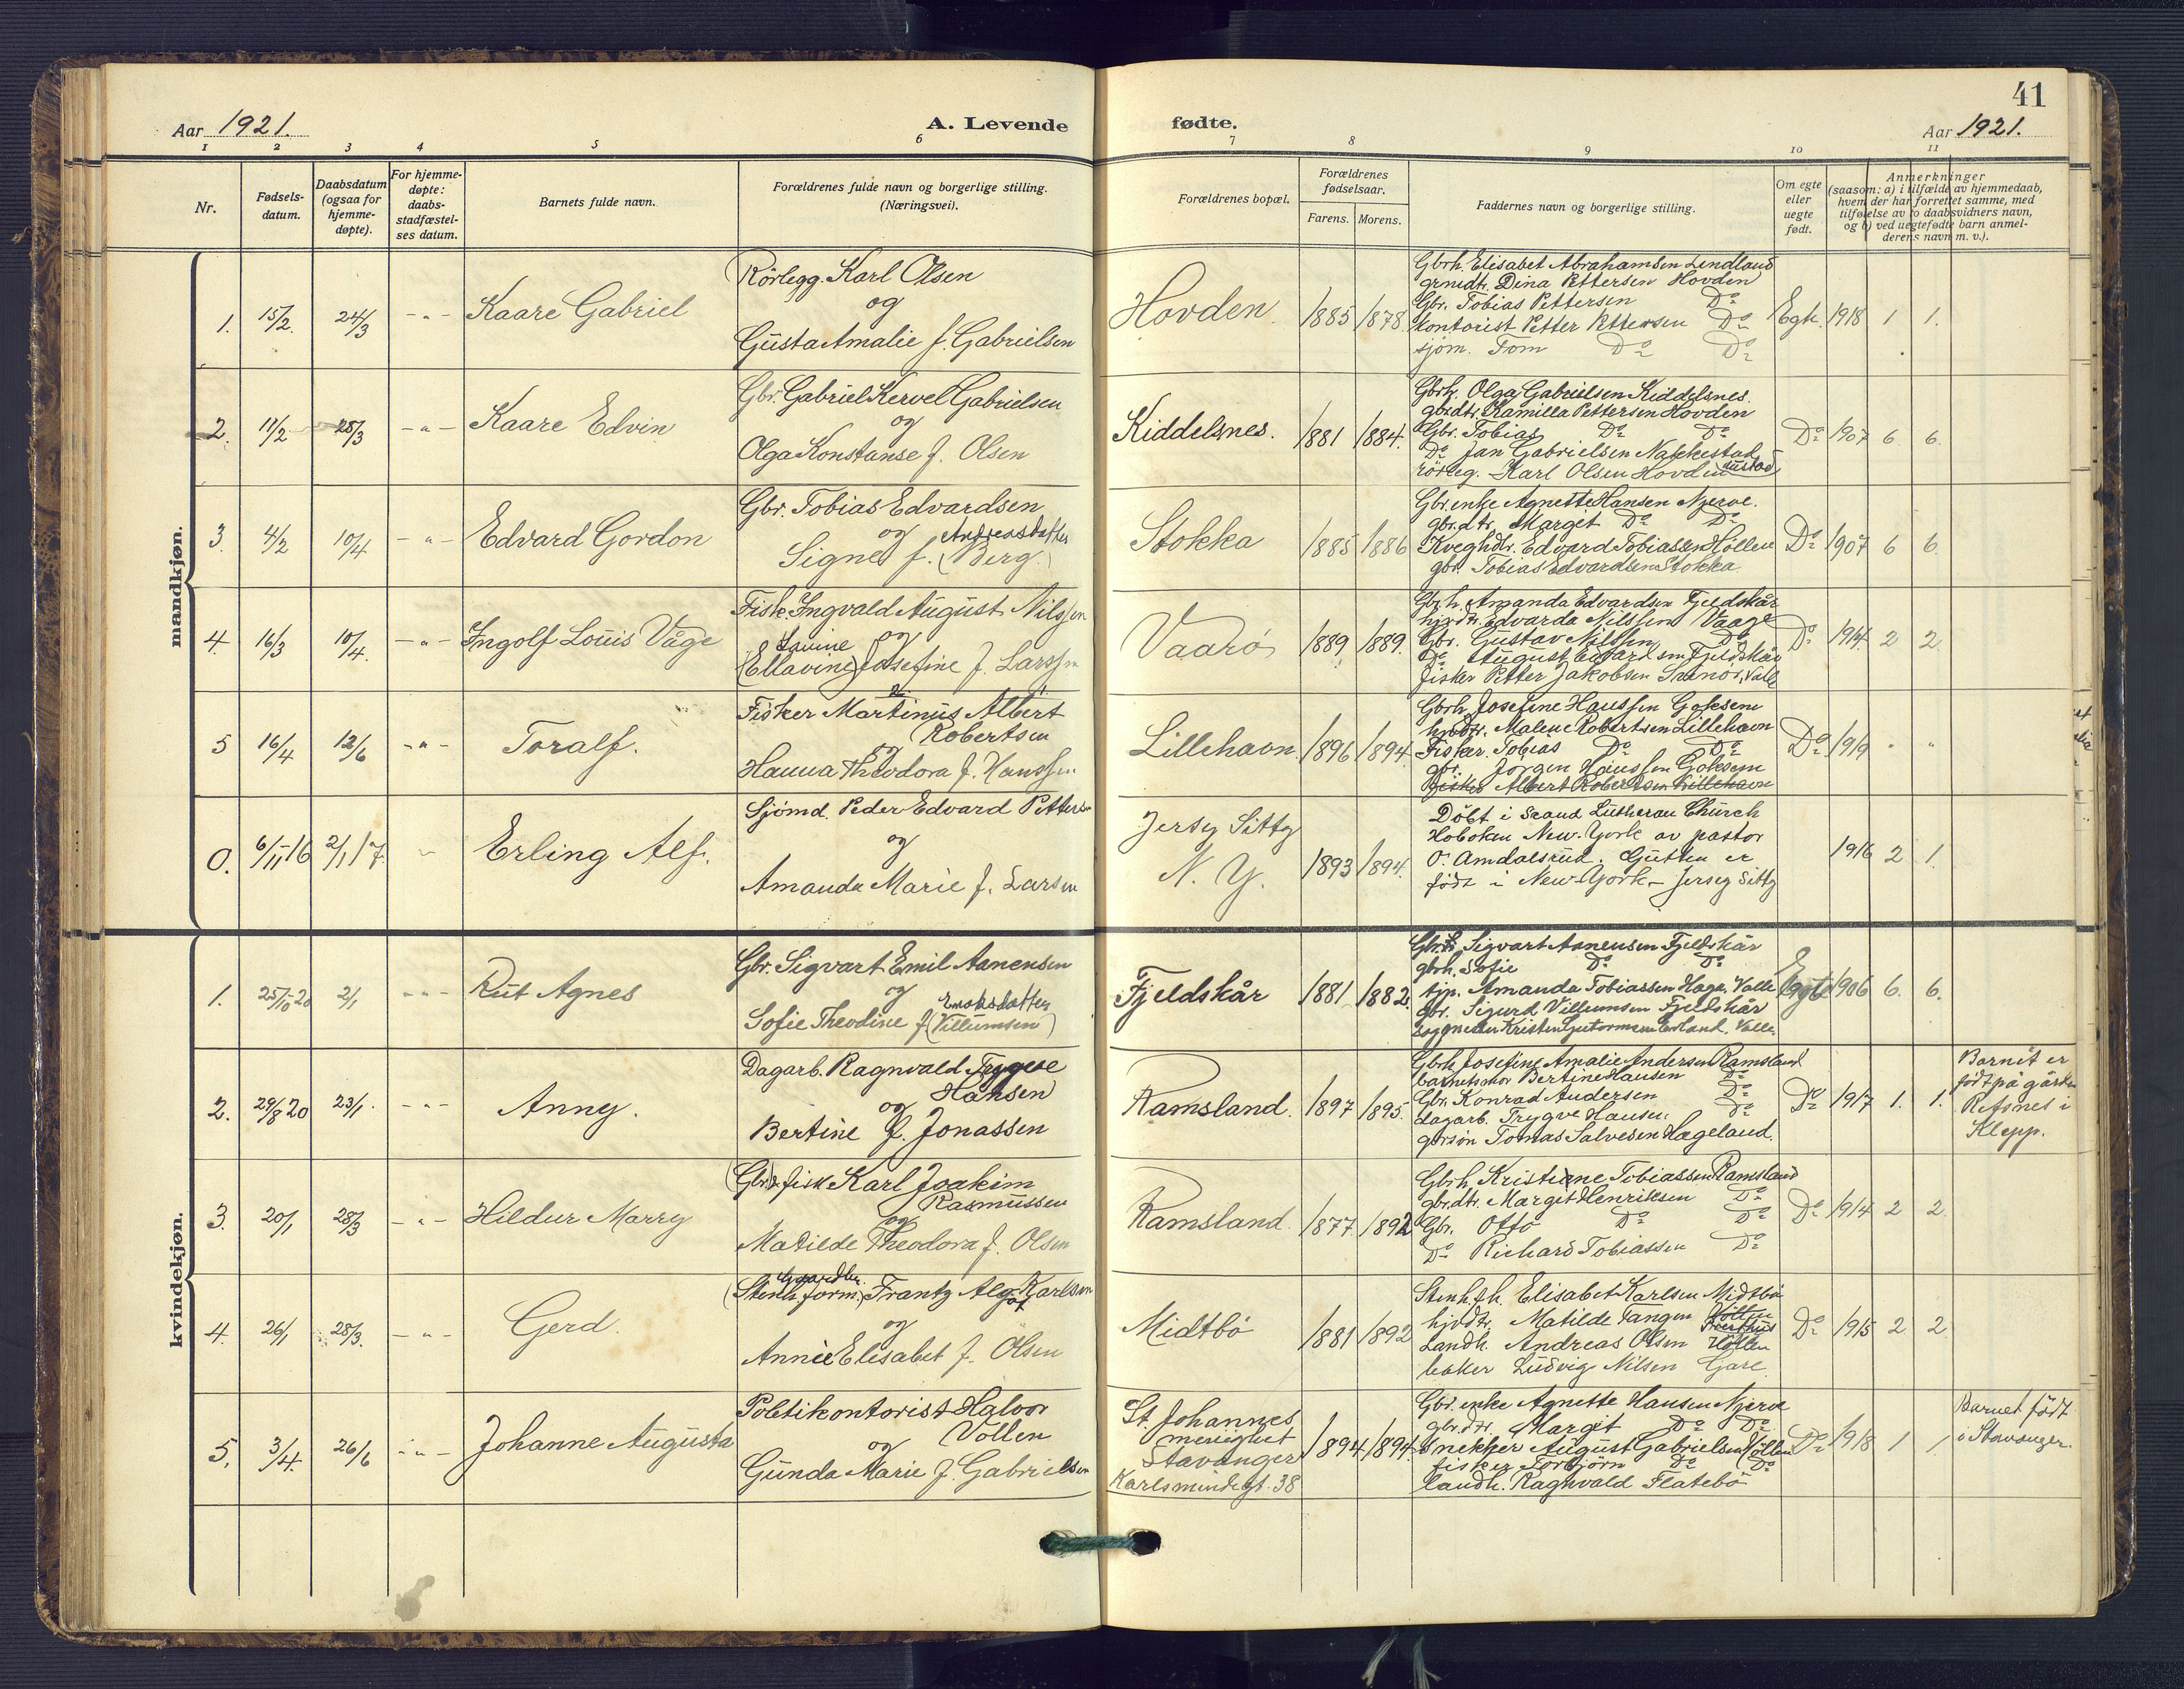 41
Aar 1921.
A. Levende
fødte.
Aar 1921.
1 2 3 4 5 6 7 8 9 10 11
Nr.
Fødsels-
datum.
Daabsdatum
(ogsaa for
hjemme-
døpte).
For hjemme-
døpte:
daabs-
stadfæstel-
ses datum.
Barnets fulde navn.
Forældrenes fulde navn og borgerlige stilling.
(Næringsvei).
Forældrenes bopæl.
Forældrenes
fødselsaar.
Farens. Morens.
Faddernes navn og borgerlige stilling.
Om egte
eller
uegte
født.
Anmerkninger
(saasom: a) i tilfælde av hjemmedaab,
hvem der har forrettet samme, med
tilføielse av to daabsvidners navn,
og b) ved uegtefødte barn anmel-
derens navn m. v.).
mandkjøn.
1. 15/2. 24/3 - " - Kaare Gabriel
Rörlegg. Karl Olsen
og
Gusta Amalie f. Gabrielsen
Hovden 1885 1878
Gbrh. Elisabet Abrahamsen Lindland
grmdtr. Dina Pettersen Hovden
Gbr. Tobias Pettersen Do
Kontorist Petter Pettersen Do
sjöm. Tom Do Do
Egte. 1918 1 1.
2. 11/2 28/3 - " - Kaare Edvin
Gbr. Gabriel Kervel Gabrielsen
og
Olga Konstanse f. Olsen
Kiddelsnes. 1881 1884.
Gbrh. Olga Gabrielsen Kiddelsnes.
gbrdtr. Kamilla Pettersen Hovden
Gbr. Tobias Do Do
Do Jan Gabrielsen Nakkestad
rörleg. Karl Olsen Hovden
Do 1907 6 6.
3. 4/2 10/4 - " - Edvard Gordon
Gbr. Tobias Edvardsen
og Andreasdatter
Signe f. (Berg.)
Stokka 1885 1886
Gbr.enke Agnette Hansen Njerve.
gbr.dtr. Margit Do Do
Kveghdlr. Edvard Tobiassen Höllen
gbr. Tobias Edvardsen Stokka
Do 1907 6 6.
4. 16/3 10/4. - " - Ingolf Louis Våge
Fisk. Ingvald August Nilssen
Lavine og
(Ellavine) Josefine f. Larssen
Vaarö 1889 1889.
Gbrh. Amanda Edvardsen Fjeldskår
hjvdtr. Edvarda Nilssen Vaage
Gbr. Gustav Nilssen Do
Do August Edvardsen Fjeldskår
fisker Petter Jakobsen Svenör, Valle
Do 1914 2 2.
5 16/4 12/6 - " - Toralf.
Fisker Martinus Albert
Robertsen
og
Hanna Theodora f. Hanssen
Lillehavn 1896 1894.
Gbrh. Josefine Hanssen Goksem
hjvdtr. Malene Robertsen Lillehavn
Fisker. Tobias Do Do
gbr. Jörgen Hanssen Goksem
fisker Albert Robertsen Lillehavn
Do 1919 " "
0. 6/11 16 2/1 17. Erling Alf.
Sjömd. Peder Edvard Pettersen
og
Amanda Marie f. Larsen
Jersy Sitty
N. Y. 1893 1894.
Döbt i Scand Lutheran Church
Hoboken New-York av pastor
O. Amdalsrud. Gutten er
födt i New-York - Jersey Sitty
1916 2 1.
kvindekjøn.
1. 25/10 20 2/1 - " - Rut Agnes
Gbr. Sigvart Emil Aanensen
og Enoksdatter
Sofie Theodine f. (Villumsen)
Fjeldskår 1881 1882
Gbr. Sigvart Aanensen Fjeldskår
gbrh. Sofie Do Do
tjp. Amanda Tobiassen Haga. Valle
gbr. Sigurd Villumsen Fjeldskår
Egte 1906 6. 6.
2. 29/8 20 23/1. - " - Anny.
Dagarb. Ragnvald Trygve
Hansen
og
Bertine f. Jonassen
Ramsland. 1897 1895.
Gbrh Josefine Amalie Andersen Ramsland
barnets mor Bertine Hansen Do
Gbr. Konrad Andersen Do
dagarb. Trygve Hansen Do
gbrsön Tomas Salvesen Hægeland.
Do 1917 1. 1.
Barnet er
födt på gården
Refsnes i
Klepp.
3. 20/1 28/3 - " - Hildur Marry
(Gbr.) fisk Karl Joakim
Rasmussen
og
Matilde Theodora f. Olsen
Ramsland. 1877 1892
Gbrh Kristiane Tobiassen Ramsland
gbrdtr. Margit Henriksen Do
Gbr. Otto Do Do
Do Richard Tobiassen Do
Do 1914 2 2.
4. 26/1 28/3. - " - Gerd.
(Stenh. form.) Frantz Algot Karlsen
og
Annie Elisabet f. Olsen
Midtbö 1881 1892
Stenh.fh. Elisabet Karlsen Midtbö
hjvdtr. Matilde Tangen
Landh. Andreas Olsen Höllen
baker Ludvig Nilsen Gare
Do 1915 2 2.
5. 3/4. 26/6 - " - Johanne Augusta
Politikontorist Halvor
Vollen
og
Gunda Marie f. Gabrielsen
St. Johannes
menighet
Stavanger
Karlsmindegt. 38
1894 1894.
Gbr. enke Agnette Hansen Njerve
gbr.dtr. Margit Do Do
Snekker August Gabrielsen Höllen
fisker Torbjörn Do Do
landh. Ragnvald Flatebö
Do 1918 1 1
Barnet födt
i Stavanger.